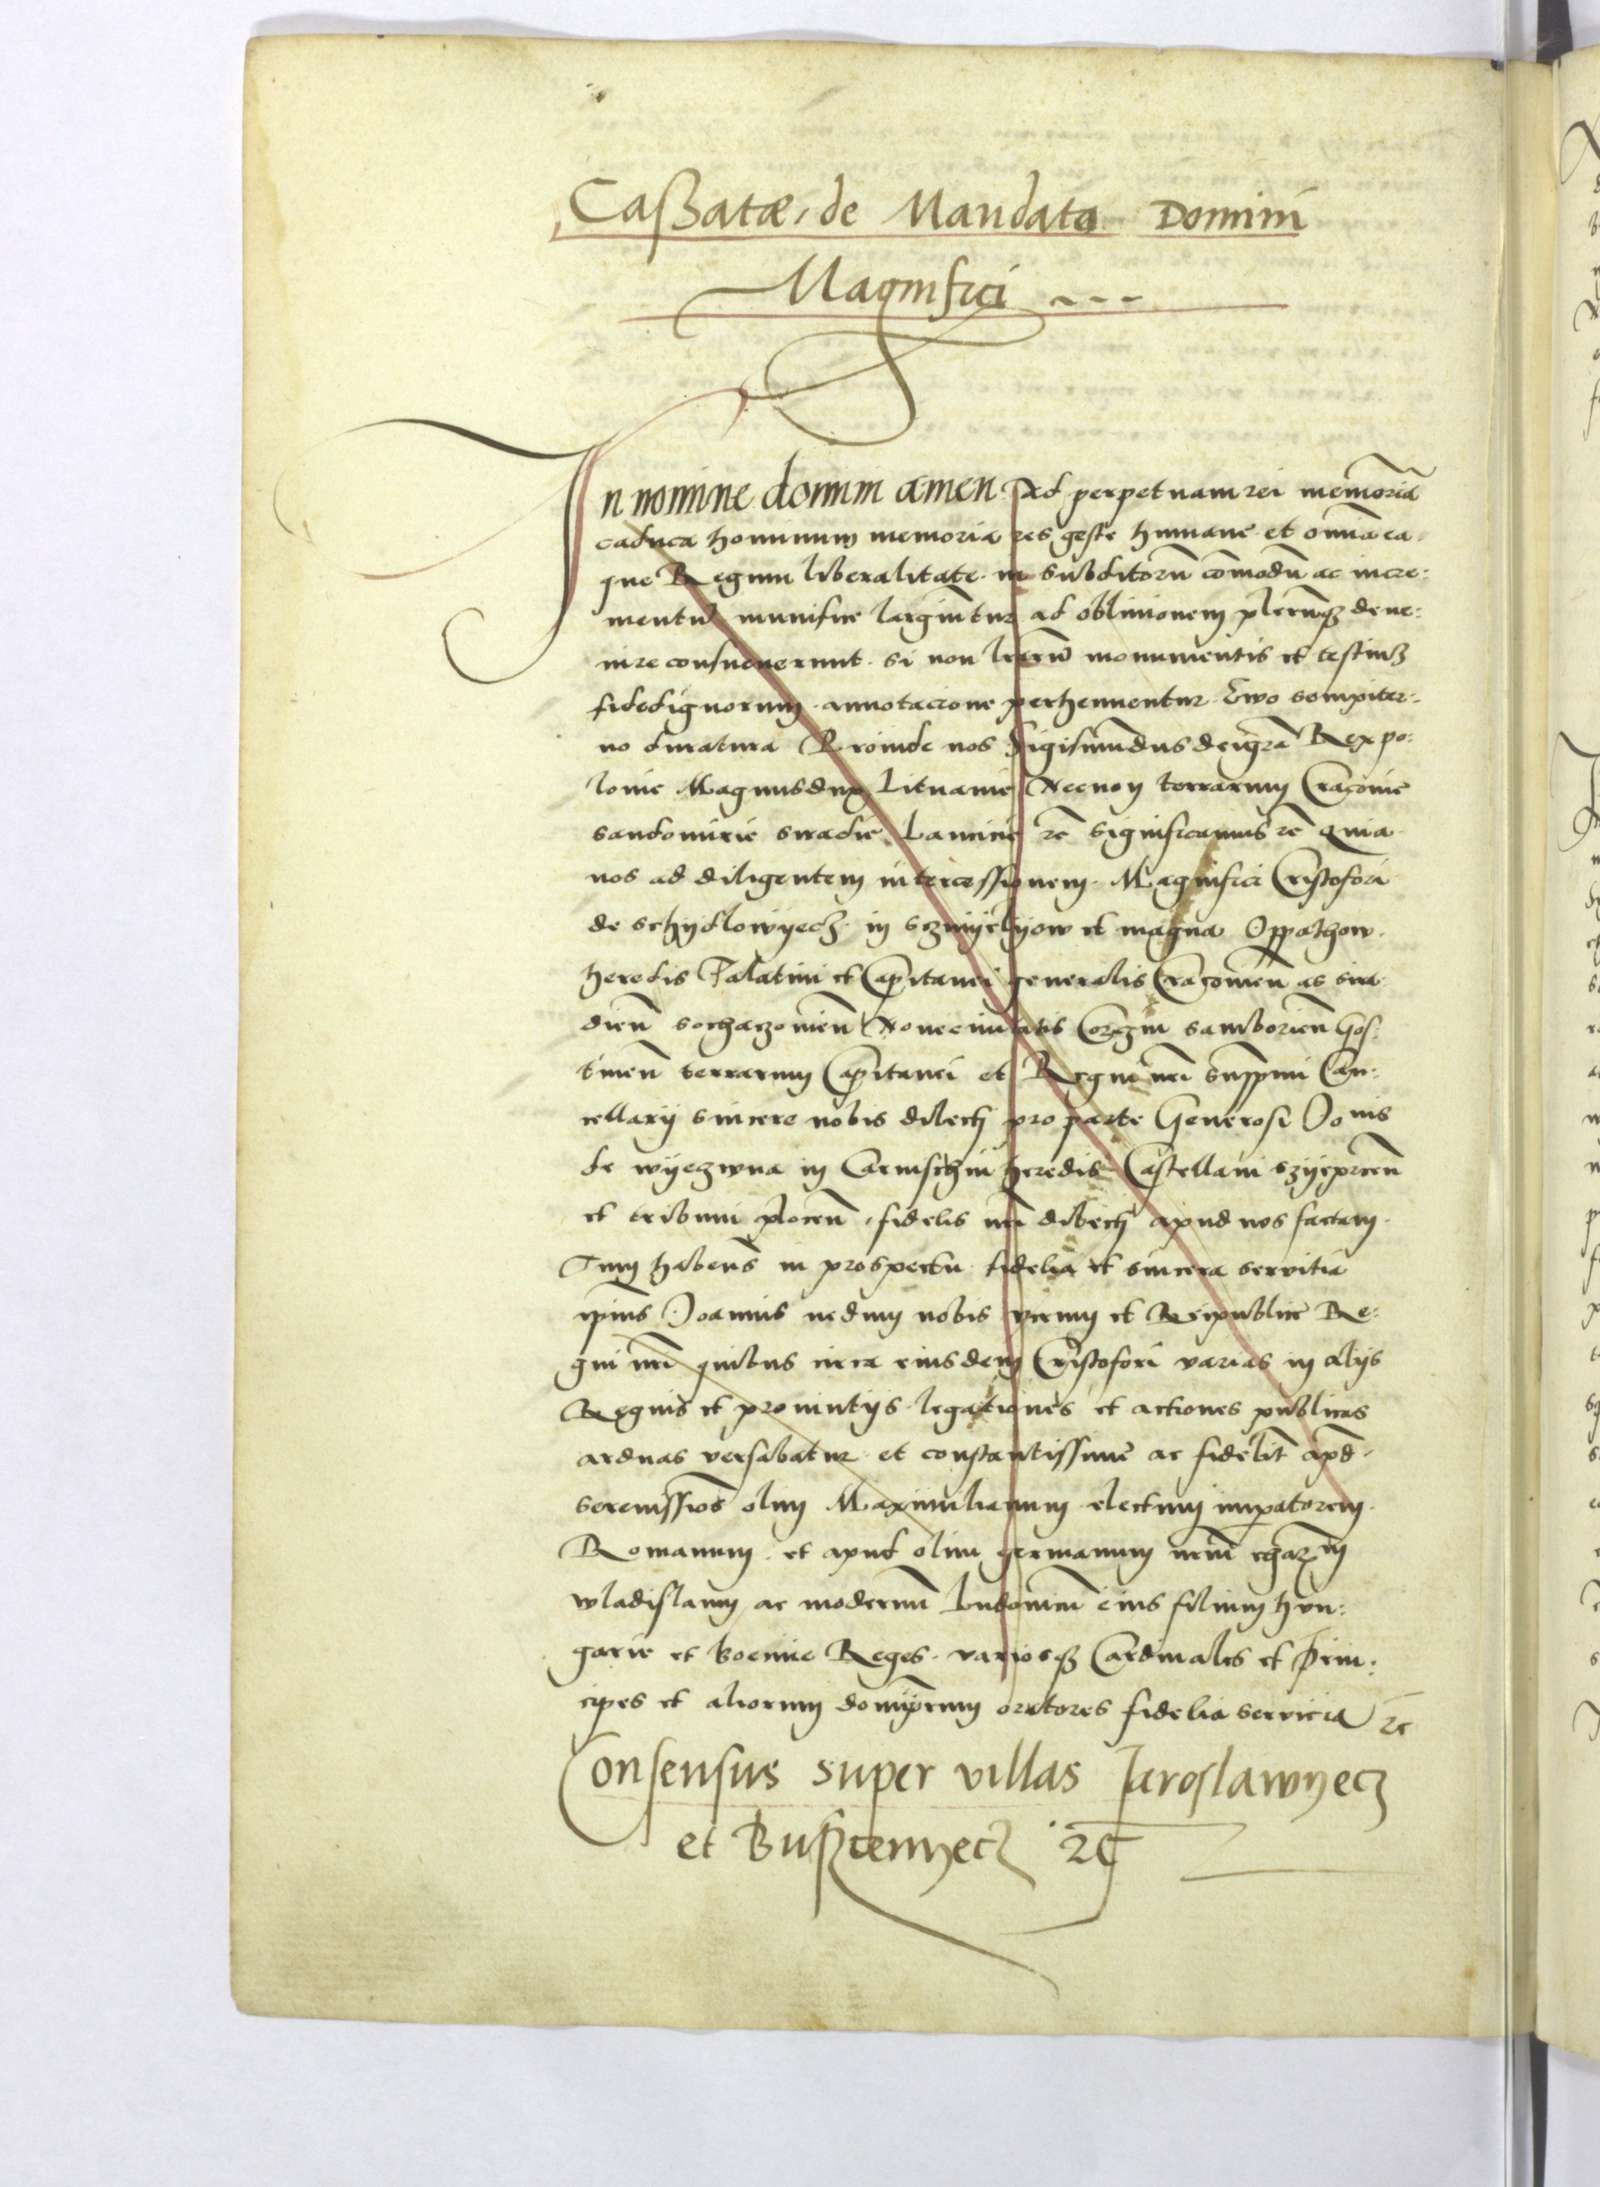 Caßatæ, de Mandata Domini
Magnifici ---
In nomine domini amen Ad perpetuam rei memoriā
caduca hominum memoria res geste humane et omīa ea
que Regum liberalitate in subditorū cōmodū ac incre:
mentū munifice largiūtur ad oblivionem plerūqȝ deve:
nire consueverunt. si non lrārū monumentis et testiuȝ
fidedignorum annotacione perhennentur Evo sempiter:
no duratura Proinde nos Sigismūdus dei grā Rex po:
lonie Magnus dux Lituanie Necnon terrarum Cracovie
sandomirie siradie Lancicie rē significamus rē Quia
nos ad diligentem intercessionem Magnifici Cristofori
de schydlowyecz in szmyelyow et magna Oppathow
heredis Palatini et Capitanei generalis Cracovien̄ ac sira
dien̄ sochaczovien̄ Novecivitatis Corczin samborien̄ Gos:
tinen̄ terrarum Capitanei et Regni nr̄i supp̄mi Can:
cellarij sincere nobis dilecti pro parte Generosi Joānis
de wyeczwna in heredis Castellani szyeprcen̄
et tribuni plocen̄, fidelis nr̄i dilecti apud nos factam
Tum habens in prospectu fidelia et sincera servitia
ip̄ius Joannis nedum nobis verum et Reipublice Re:
gni nr̄i quibus circa eiusdem Cristofori varias in alijs
Regnis et provintijs legationes et actiones publicas
arduas versabatur et constantissime ac fidelit̄ apd̄
serenissīos olim Maximilianum electum imp̄atorem
Romanum et apud olim germanum nrm̄ char^m
wladislaum ac modernū Ludovicū eius filium hun:
garie et boemie Reges variosqȝ Cardinales et Prin:
cipes et aliorum domīorum oratores fidelia servicia ꝛc
Consensus super villas Jaroslawyecz
et Bußcenyecz ꝛc